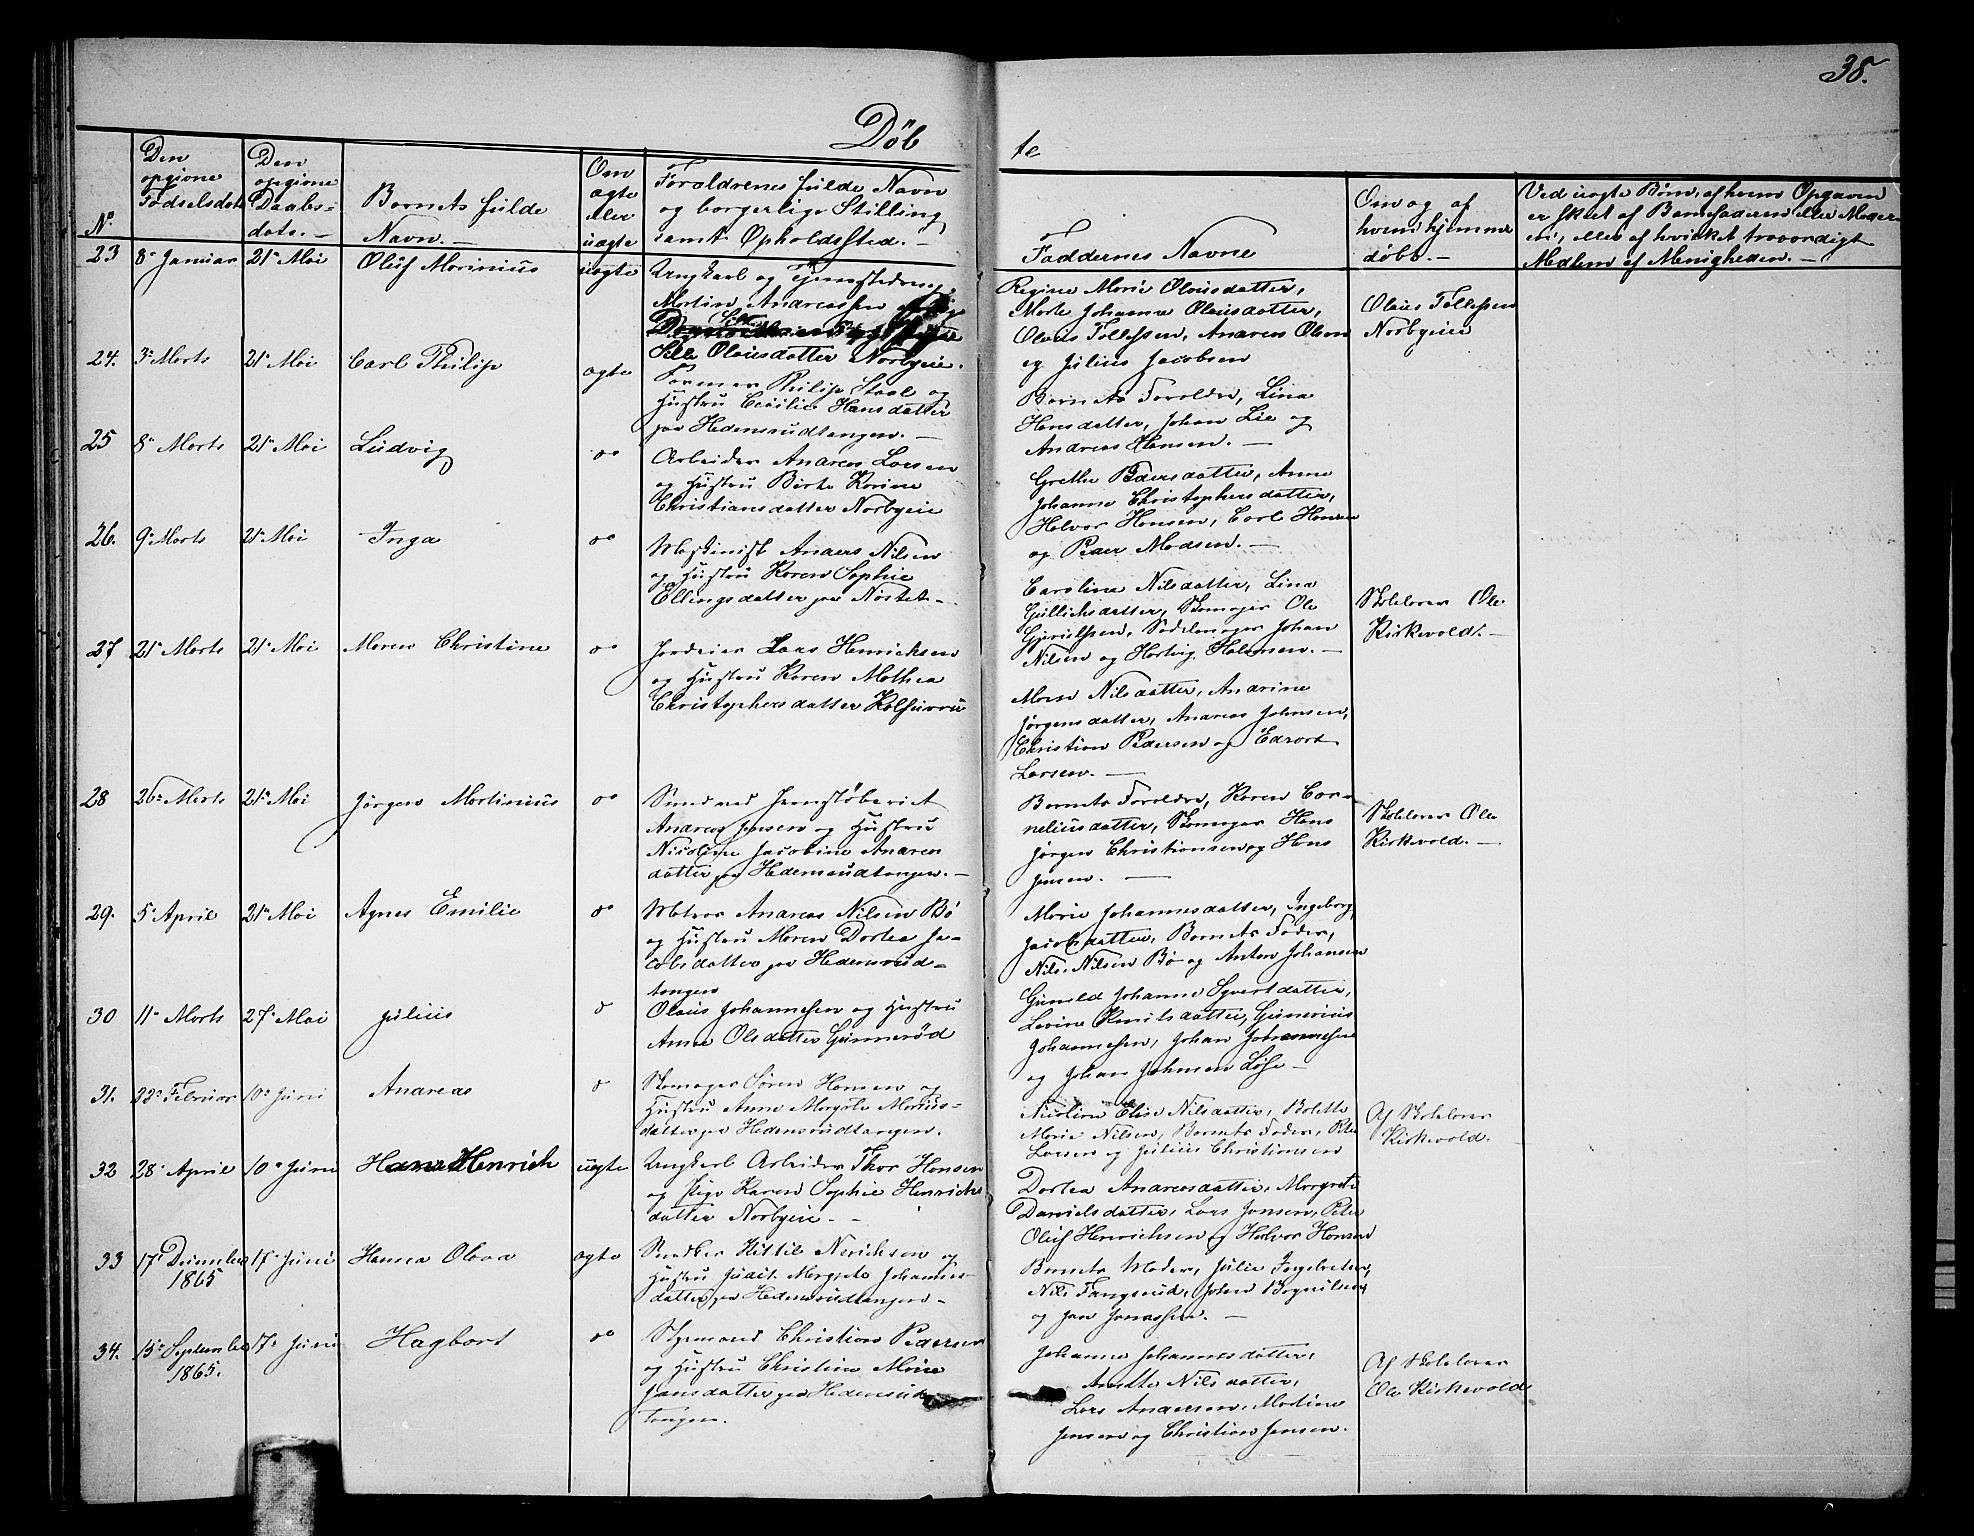 38.
Döbte
No
Den opgivne Fødselsdato
Den opgivne Daabs-dato. —
Barnets fulde Navn. —
Om ægte eller uægte
Foraldrenes fulde Navn og borgerlige Stilling samt Opholdssted. —
Faddernes Navne
Om og af hvem hjemme døbt. —
Ved uagte Børn, af hvem Opgaven er skeet af Barnefaderen eller Moderen, eller af hvilket troværdigt Medlem af Menigheden. —
23 8de Januar 21de Mai Oluf Marinius uagte
Ungkarl og Tjenestedreng
Martin Andreassen
Sille Olausdatter Norbyeie.
Regine Marie Olausdatter,
Marte Johanne Olausdatter,
Olaus Tollefsen, Andreas Olsen
og Julius Jacobsen
Olaus Tollefsen
Norbyeie
24. 3de Marts 21de Mai Carl Philip agte
Former Philip Staal og
Hustru Cecilie Hansdatter
paa Hedensrudtangen. —
Barnets Foraldre, Lina
Hansdatter, Johan Lie og
Andreas Hansen. —
25 8de Marts 21de Mai Ludvig do
Arbeider Andreas Larsen
og Hustru Birte Karine
Christiansdatter Norbyeie
Grethe Pedersdatter, Anne
Johanne Christophersdatter,
Halvor Hansen, Carl Hansen
og Peder Madsen. —
26. 9de Marts 21de Mai Inga do
Maskinist Anders Nilsen
og Hustru Karen Sophie
Ellingsdatter paa Nøstet. —
Caroline Nilsdatter, Lina
Gullichsdatter, Skomager Ole
Sadelmager Johan
Nilsen og Hartvig Halmsen. —
Skolelærer Ole
Kirkevold. —
27 21de Marts 21de Mai Maren Christine do
Jordeier Lars Henricksen
og Hustru Karen Mathea
Christophersdatter
Maren Nilsdatter, Andrine
Jørgensdatter, Andreas Johnsen,
Christian Pedersen og Edvart
Larsen. —
28 26de Marts 21de Mai Jørgen Martinius do
Smed ved Jernstøberiet
Andreas Jensen og Hustru
Nicoline Jacobine Andreas
datter paa Hedensrudtangen. —
Barnets Foraldre, Karen Cor-
neliusdatter, Skomager Hans
Jørgen Christiansen og Hans
Jensen. —
Skolelærer Ole
Kirkevold. —
29. 5te April 21de Mai Agnes Emilie do
Matros Andreas Nilsen Bö
og Hustru Maren Dortea Ja-
cobsdatter paa Hedensrud-
tangen
Marie Johannesdatter, Ingeborg
Jacobsdatter, Barnets Fader,
Nils Nilsen Bö og Anton Johansen
30 11te Marts 27de Mai Julius do
Olaus Johannesen og Hustru
Anne Olsdatter Gunnerød
Gunild Johanne Syvertdatter,
Lovise Knutsdatter, Gunerius
Johannesen, Johan Johannesen
og Johan Johnsen Løse —
31. 28de Februar 10de Juni Andreas do
Skomager Søren Hansen og
Hustru Anne Margrete Marius-
datter paa Hedensrudtangen.
Nicoline Elise Nilsdatter, Bolette
Marie Nilsen, Barnets Fader, Peter
Larsen og Julius Christiansen
Af Skolelærer
Kirkevold.
32 28de April 10de Juni Hans Henrich uagte
Ungkarl Arbeider Thor Hansen
og Pige Karen Sophie Henrichs
datter Norbyeie. —
Dortea Andreasdatter, Margrete
Danielsdatter, Lars Jensen, Peter
Oluf Henrichsen og Halvor Hansen
33 17de December 1865 17de Juni Hanna Olava agte
Kittil Nerichsen og
Hustru Judit Margrete Johannes-
datter paa Hedensrudtangen —
Barnets Moder, Julie
Nils Tangsrud, Johan
og Jan Jonassen. —
34. 15de September 1865. 17de Juni Hagbart do
Styrmand Christian Pedersen
og Hustru Christine Marie
Jansdatter paa Hedensrud
tangen.
Johanne Johannesdatter,
Nilsdatter,
Lars Andersen, Martine
Jensen og Christian Jensen.
Af Skolelærer
Ole Kirkevold